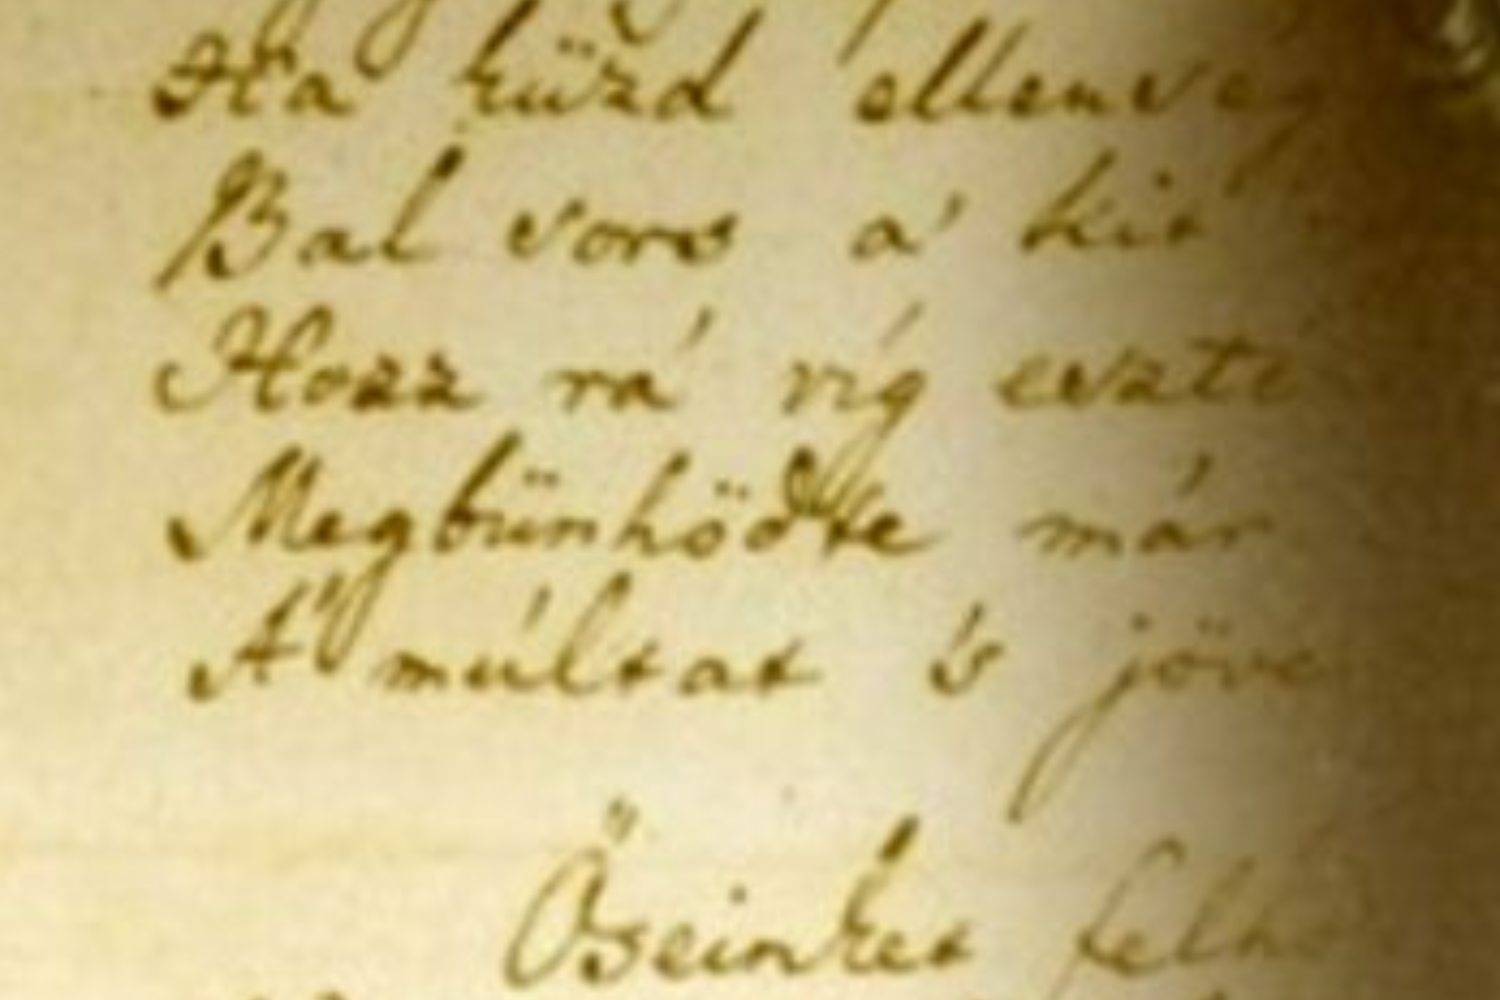 Ha küzd ellenség
Bal sors a' kit
Hozz rá víg eszte
Megbünhödte már
A' múltat 's jöve
Őseinket felho